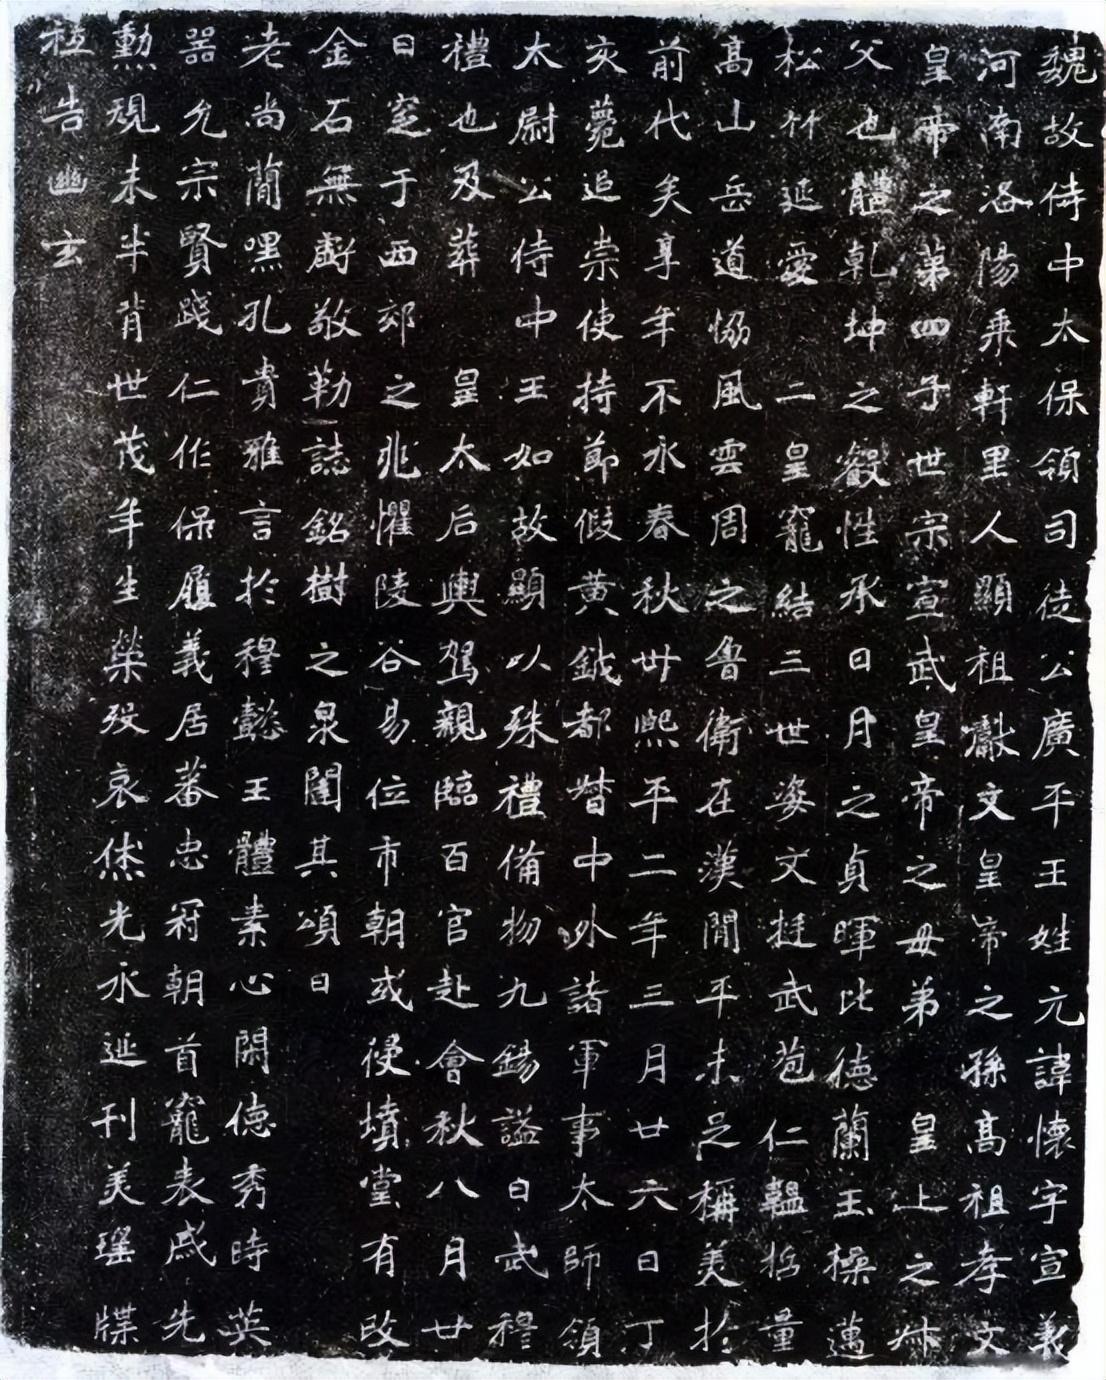 魏故侍中太保領司徒公廣平王姓元諱懷字宣義
河南洛陽乘軒里人顯祖獻文皇帝之孫高祖孝文
皇帝之第四子世宗宣武皇帝之母弟皇上之叔
父也體乾坤之叡性承日月之貞暉比德蘭玉操邁
松竹延愛二皇寵結三世姿文挺武苞仁韞哲量
高山岳道協風雲周之魯衛在漢間平未足稱美於
前代矣享年不永春秋卅熙平二年三月廿六日丁
亥薨追崇使持節假黃鉞都督中外諸軍事太師領
太尉公侍中王如故顯以殊禮備物九錫謚曰武穆
禮也及葬皇太后輿駕親臨百官赴會秋八月廿
日窆于西郊之兆懼陵谷易位市朝或侵墳堂有改
金石無虧敬勒誌銘樹之泉闥其頌曰
老尚簡嘿孔貴雅言於穆懿王體素心閑德秀時英
器允宗賢踐仁作保履義居蕃忠冠朝首寵表戚先
勳規未半背世茂年生榮歿哀休光永延刊美瑤牒
祗告幽玄